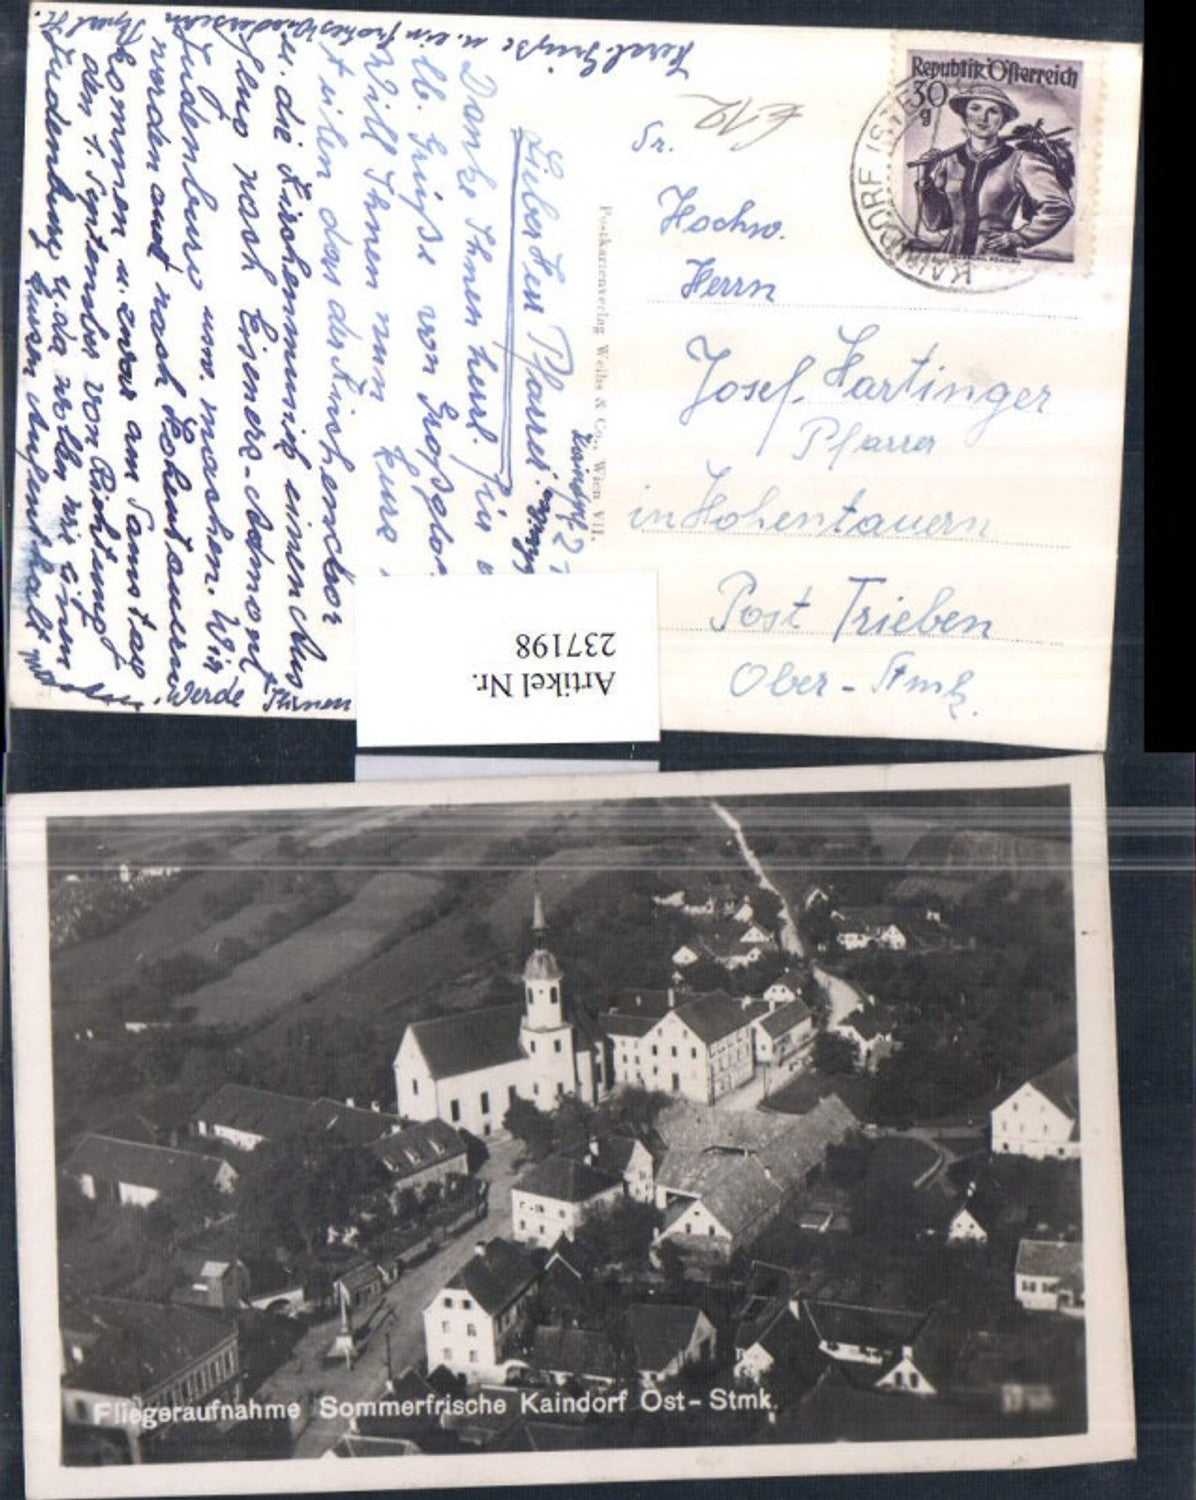 Republik Österreich
30
g
KAINDORF
Sr.
Hochw.
Herrn
Josef Hartinger
Pfarrer
in Hohentauern
Post Trieben
Ober-Stmk.
Postkartenverlag Weihs & Co., Wien VII.
Lieber Herr Pfarrer!
Danke Ihnen herzl. für
lb. Grüße von
Will Ihnen nun kurz
daß der Kirchenchor
u. die Kirchenmusik einen Aus
nach Eisenerz-Admont
Judenburg usw. machen. Wir
werden auch nach Hohentauern
kommen u. zwar am Samstag
den 1. September von Richtung
Judenburg u. da wollen wir einen
kurzen Aufenthalt machen.
Werde Ihnen
Herzl. Grüße u. ein frohes Wiedersehn
Artikel Nr.
237198
Fliegeraufnahme Sommerfrische Kaindorf Ost-Stmk.